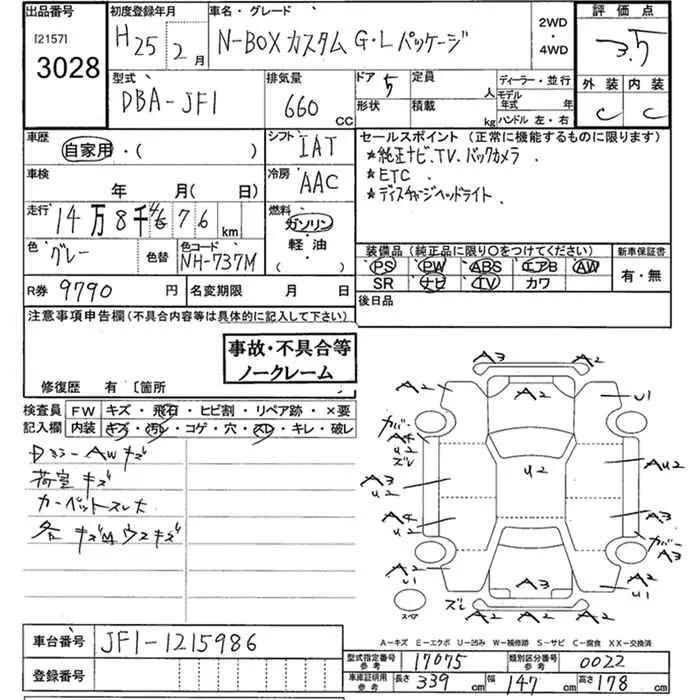 出品番号
[2157]
3028
初度登録年月
H25 2月
車名・グレード
N-BOXカスタム G・Lパッケージ
2WD
・
4WD
評価点
3.5
外装 内装
C C
型式
DBA-JF1
排気量
660 cc
ドア 5
形状
定員 人
積載 kg
ディーラー・並行
モデル年式 年
ハンドル 左・右
車歴
自家用・( )
シフト IAT
セールスポイント (正常に機能するものに限ります)
★純正ナビ、TV、バックカメラ、
★ETC
★ディスチャージヘッドライト、
車検
年 月( 日)
冷房 AAC
走行 14万8千 76 km
燃料
ガソリン
・
軽油
( )
色 グレー
色替
色コード
NH-737M
装備品 (純正品に限り○をつけてください)
PS PW ABS エアB AW
SR ナビ TV カワ
新車保証書
有・無
R券 9790 円
名変期限 月 日
後日品
注意事項申告欄(不具合内容等は具体的に記入して下さい)
事故・不具合等
ノークレーム
修復歴 有 〔箇所
検査員 FW キズ・飛石・ヒビ割・リペア跡・×要
記入欄 内装 キズ・汚レ・コゲ・穴・スレ・キレ・破レ
Dミラー AWキズ
荷室キズ
カーペットスレ大
各 キズ ウスキズ
A3
A2 A2
A2 U1
カバー
A4
U2
ズレ
U2 AU2
A3
U2
A4
U2
A3
カバー
A2
A2
U1
A3
A2
U1
スペア
ズレ A2 A2 A2
A-キズ E-エクボ U-凹み W-補修跡 S-サビ C-腐食 XX-交換済
車台番号 JF1-1215986
登録番号
型式指定番号 参考 17075
類別区分番号 参考 0022
車庫証明用 参考 長さ 339 cm 幅 147 cm 高さ 178 cm